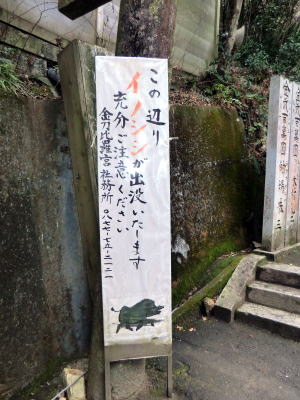 この辺り
イノシシが出没いたします
充分ご注意ください
金刀比羅宮社務所
〇八七七-七五-二一二一